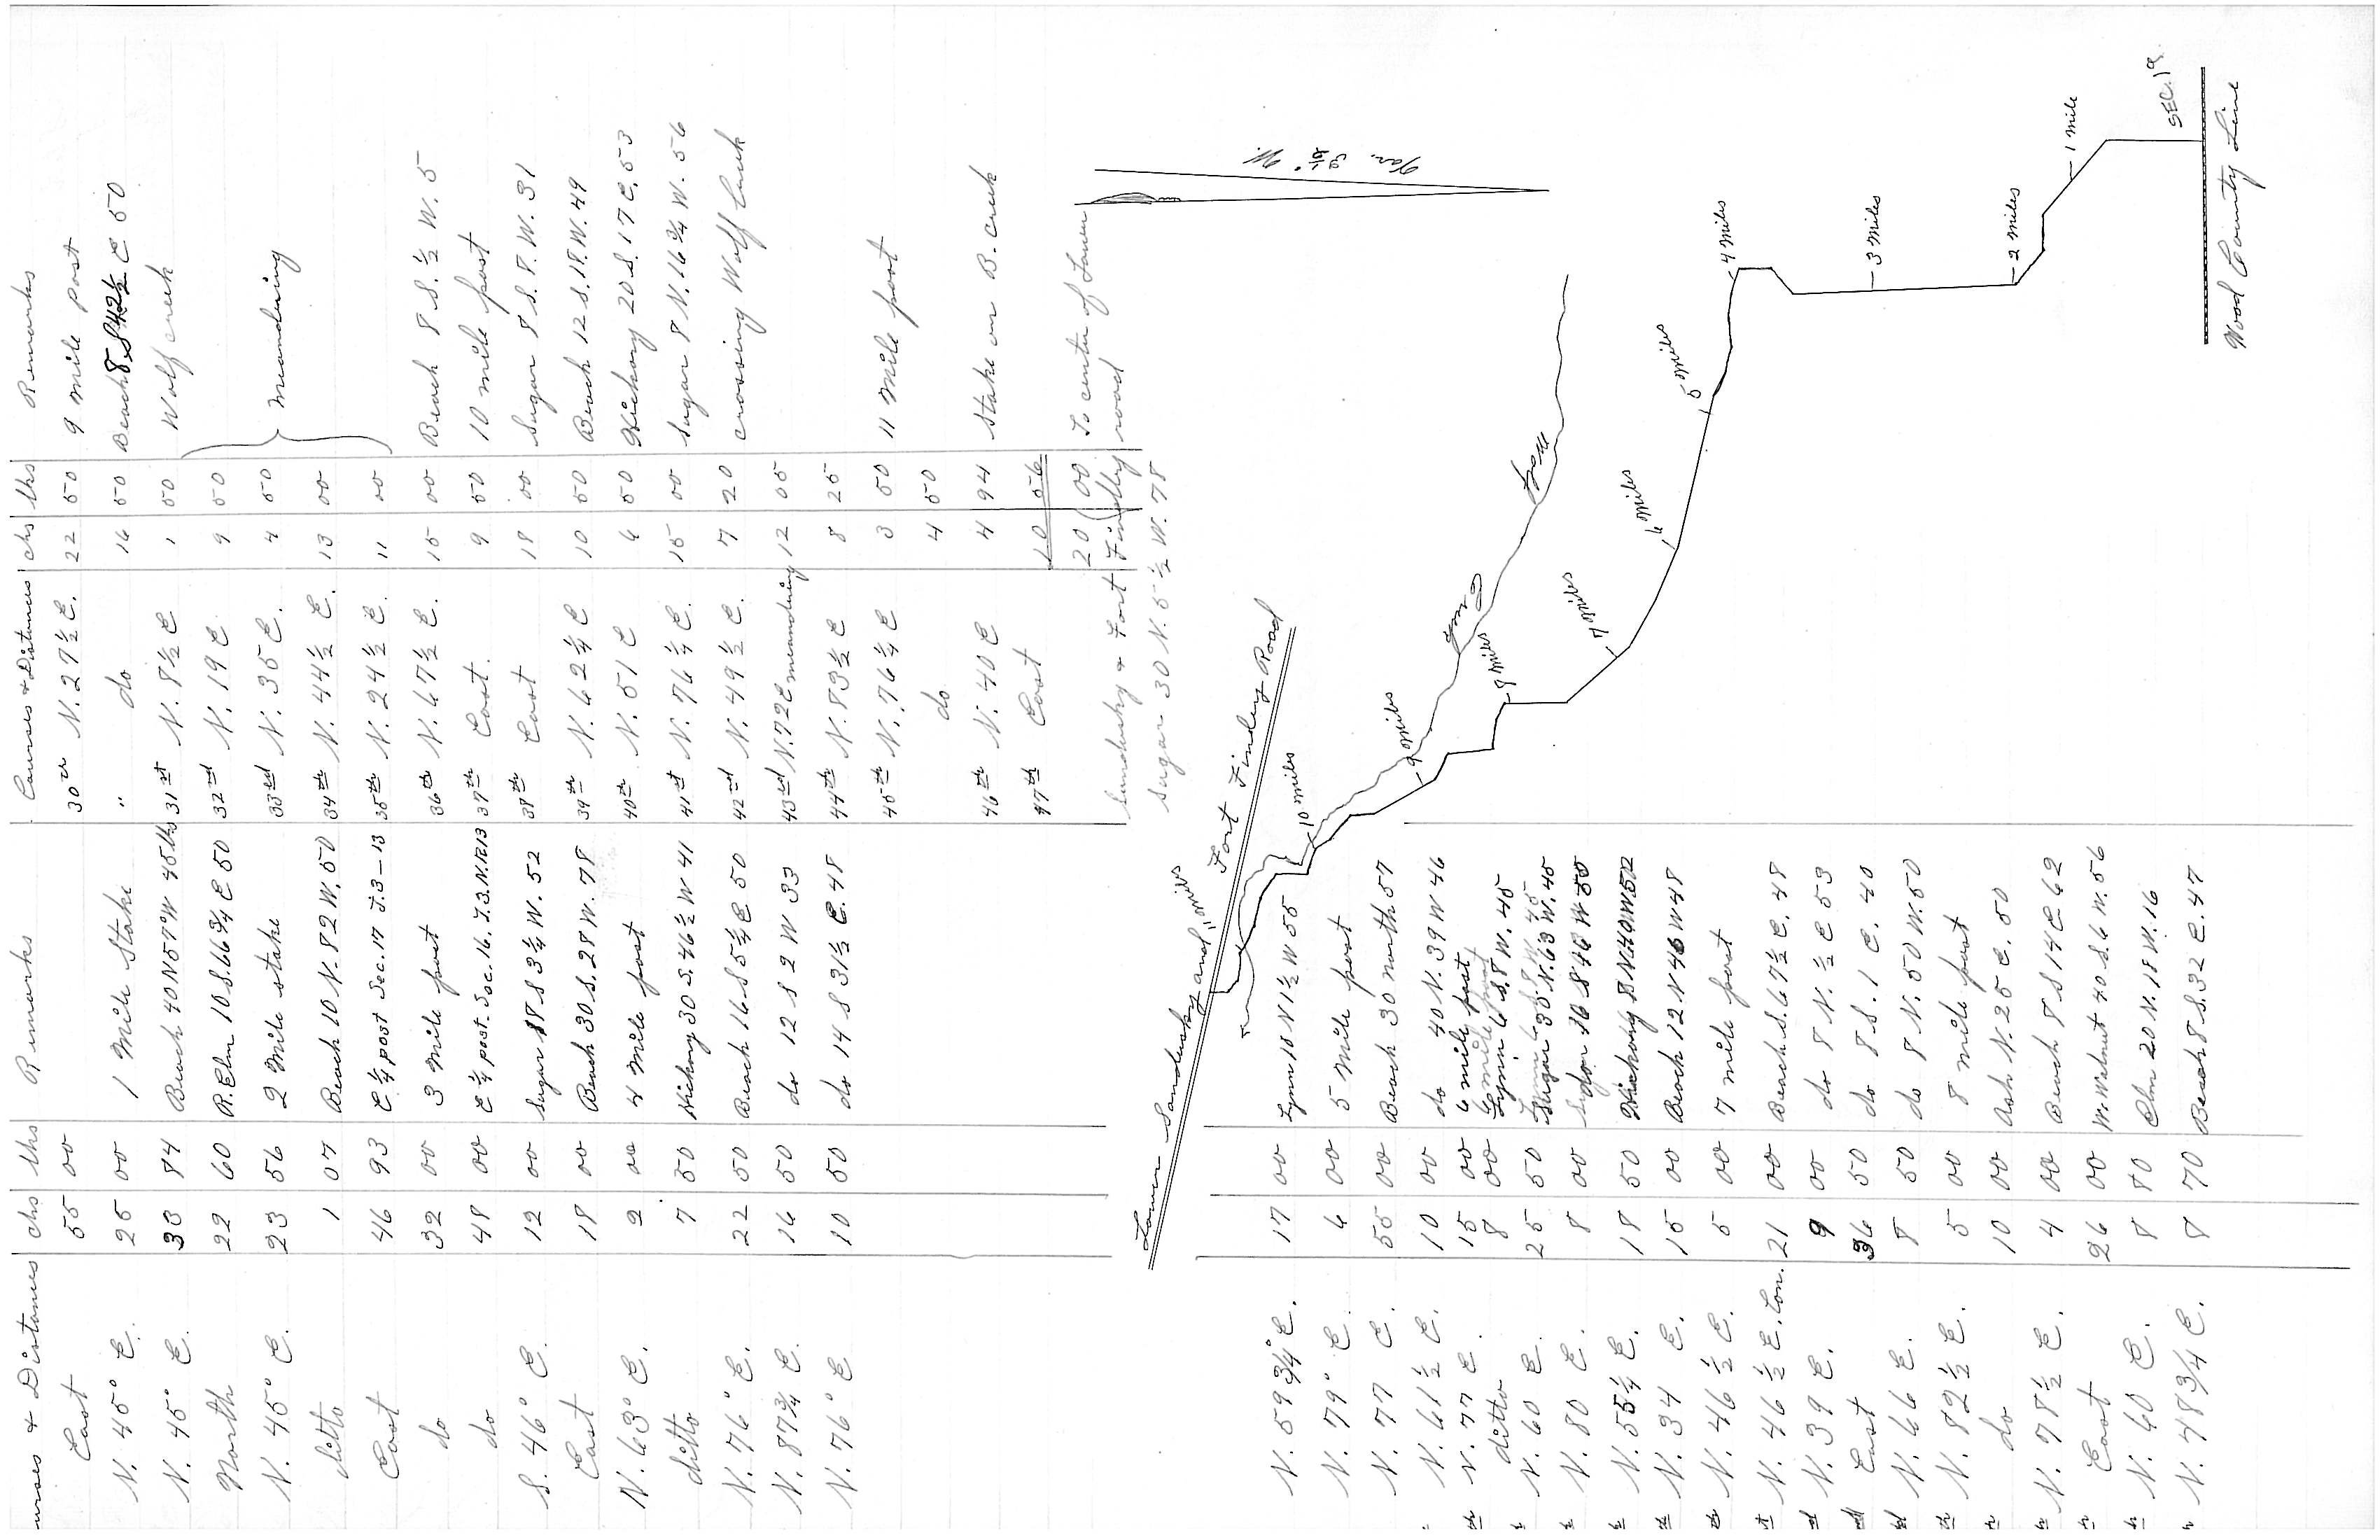 Courses & Distances | chs | lks | Remarks
East 55 00
N. 45° E. 25 00 1 Mile Stake
N. 45° E. 33 84 Beach 40 N 57° W 45 lks
North 22 60 R. Elm 10 S. 66 3/4 E 50
N. 45° E. 23 56 2 Mile stake
ditto 1 07 Beach 10 N. 82 W. 50
East 46 93 E 1/4 post Sec. 17 T.3-13
do 32 00 3 Mile post
do 48 00 E 1/4 post. Sec. 16. T.3.N.R13
S. 46° E. 12 00 Sugar 18 S 3 1/4 W. 52
East 18 00 Beach 30 S. 28 W. 78
N. 63° E. 2 00 4 Mile post
ditto 7 50 Hickory 30 S. 46 1/2 W 41
N. 76° E. 22 50 Beach 16 S 5 1/4 E 50
N. 87 3/4 E. 16 50 do 12 S 2 W 33
N. 76° E 10 50 do 14 S 31 1/2 E. 48
Courses & Distances | chs | lks | Remarks
30th N. 27 1/2 E. 22 50 9 mile post
" do 16 50 Beach 8 S 42 1/2 E 50
31st N. 8 1/2 E 1 50 Wolf creek
32nd N. 19 E. 9 50
33rd N. 35 E. 4 50 Meandering
34th N. 44 1/2 E. 13 00
35th N. 24 1/2 E. 11 00
36th N. 67 1/2 E. 15 00 Beach 8 S. 1/2 W. 5
37th East. 9 50 10 mile post
38th East 18 00 Sugar 8 S. 8. W. 31
39th N. 62 1/4 E 10 50 Beach 12 S. 18. W. 49
40th N. 51 E 6 50 Hickory 20 S. 17 E. 53
41st N. 76 1/4 E. 15 00 Sugar 8 N. 16 3/4 W. 56
42nd N. 49 1/2 E. 7 20 crossing Wolf Creek
43rd N. 72 E meandering 12 05
44th N. 83 1/2 E 8 25
45th N. 76 1/4 E 3 50 11 Mile post
do 4 50
46th N. 40 E 4 94 Stake on B. creek
47th East 10 56
20 00 To center of Lower
Sandusky & Fort Findley road
Sugar 30 N. 5 1/2 W. 78
Var. 3 1/2° W.
Lower Sandusky and Fort Findley Road
11 miles
10 miles
9 miles
8 miles
7 miles
6 Miles
5 miles
4 Miles
3 Miles
2 Miles
1 Mile
SEC. 19
Wood County Line
N. 59 3/4° E. 17 00 Lynn 10 N 1 1/2 W 55
N. 79° E. 6 00 5 Mile post
N. 77 E. 55 00 Beach 30 north. 57
N. 61 1/2 E. 10 00 do 40 N. 39 W 46
N. 77 E. 15 00 6 mile post
ditto 8 00 Lynn 6 S. 8 W. 45
N. 60 E. 25 50 Sugar 30 N. 63 W. 45
N. 80 E. 8 00 do 16 S 46 W 50
N. 55 1/4 E. 18 50 Hickory 8 N 40 W 52
N. 34 E. 15 00 Beach 12 N 46 W 48
N. 46 1/2 E. 5 00 7 mile post
N. 46 1/2 E. Con. 21 00 Beach S. 67 1/2 E. 48
N. 39 E. 9 00 do 8 N. 1/2 E 53
East 36 50 do 8 S. 1 E. 40
N. 66 E. 8 50 do 8 N. 50 W. 50
N. 82 1/2 E. 5 00 8 mile post
do 10 00 Ash N. 25 E. 50
N. 78 1/2 E. 4 00 Beach 8 S 14 E 62
East 26 00 W. Walnut 40 S. 6 W. 56
N. 60 E. 8 80 Elm 20 N. 18 W. 16
N. 48 3/4 E. 8 70 Beach 8 S. 32 E. 47